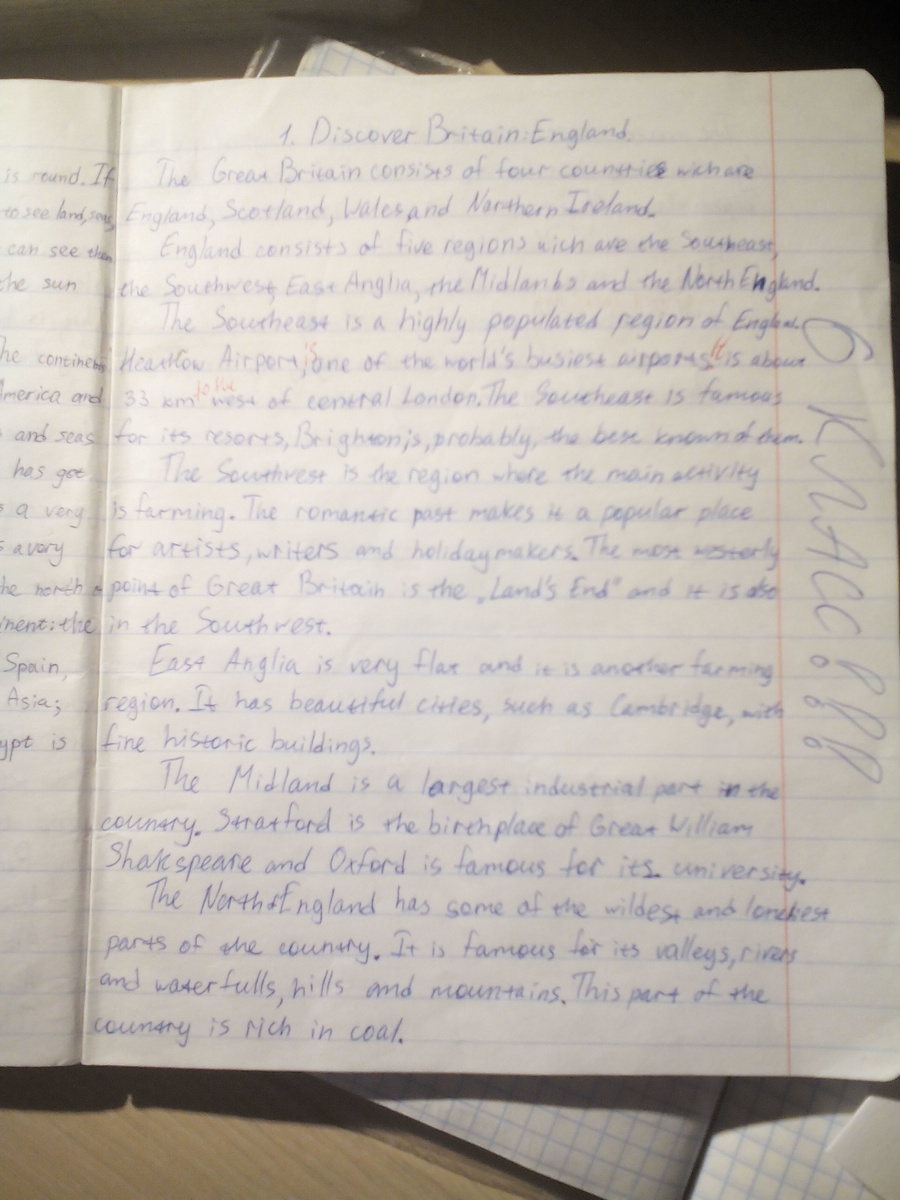 is round. If
to see land, seas,
can see them
the sun
the continents
America and
and seas
has got
a very
a very
the north
inent: the
Spain,
Asia;
ypt is
1. Discover Britain: England.
The Great Britain consists of four countries wich are
England, Scotland, Wales, and Northern Ireland.
England consists of five regions wich are the Southeast,
the Southwest, East Anglia, the Midlands and the North England.
The Southeast is a highly populated region of England.
Heathow Airport, is one of the world's busiest airports, It is about
33 km to the west of central London. The Southeast is famous
for its resorts, Brighton, is, probably, the best known of them.
The Southwest is the region where the main activity
is farming. The romantic past makes it a popular place
for artists, writers and holidaymakers. The most westerly
point of Great Britain is the „Land's End" and it is also
in the Southwest.
East Anglia is very flat and it is another farming
region. It has beautiful cities, such as Cambridge, with
fine historic buildings.
The Midland is a largest industrial part in the
country. Stratford is the birthplace of Great William
Shakspeare and Oxford is famous for its university.
The North of England has some of the wildest and loneliest
parts of the country. It is famous for its valleys, rivers
and waterfulls, hills and mountains. This part of the
country is rich in coal.
6 КЛАСС!!!